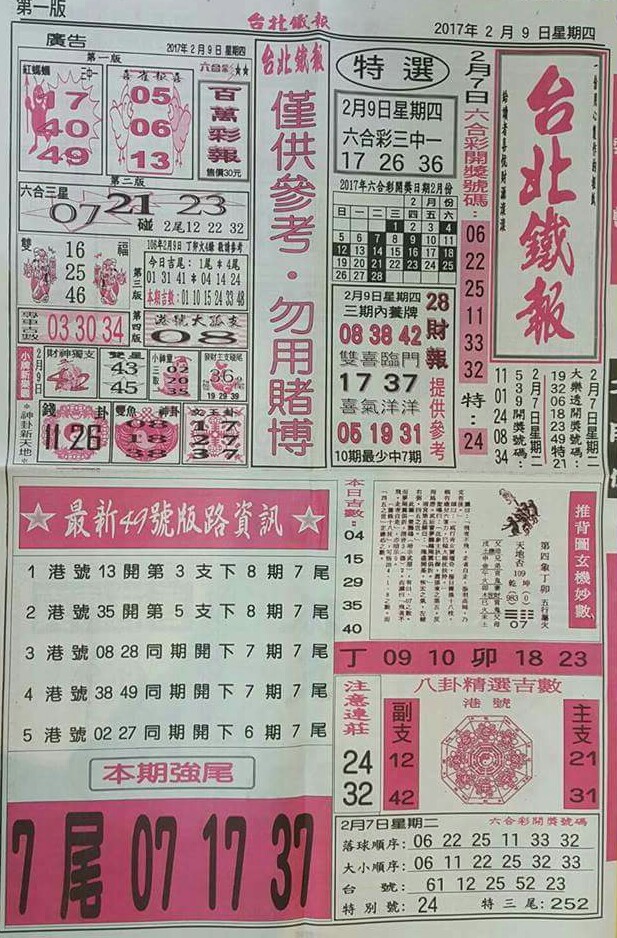 第一版
台北鐵報
2017年 2 月 9 日星期四
廣告
2017年 2 月 9 日 星期四
第一版
紅螞蟻
二中一
17
40
49
喜雀報喜
05
06
13
六合彩★★
百萬彩報
售價30元
第二版
六合三星
07 21 23
碰 2尾12 22 32
雙
福
16
25
46
106年2月9日 丁酉火4條 敬請參考
今日吉尾: 1尾*4尾
01 31 41*04 14 24
本期吉數:01 10 15 24 33 48
第三版
第四版
專車吉數
03 30 34
港號大孤支
08
小牌新樂園
2月9日
財神獨支
42
雙星
43
45
小神童
三取
02
20
35
發財主支碰尾
36
19 29 39
*神卦新天地*
錢
卦
11 26
雙魚
神卦
08
18
08
17
27
37
台北鐵報
僅供參考・勿用賭博
特選
2月9日星期四
六合彩三中一
17 26 36
2017年六合彩開獎日期2月份
日 一 二 三 四 五 六
1 2 3 4
5 6 7 8 9 10 11
12 13 14 15 16 17 18
19 20 21 22 23 24 25
26 27 28
2月9日星期四
三期內養牌
08 38 42
雙喜臨門
17 37
喜氣洋洋
05 19 31
10期最少中7期
28財報提供參考
2月7日六合彩開獎號碼:06 22 25 11 33 32 特:24
台北鐵報
2月7日星期二
大樂透開獎號碼:
19 32 06 18 23 49特21
2月7日星期二
539開獎號碼:
11 01 24 08 34
★最新49號版路資訊★
1 港號13開第3支下8期7尾
2 港號35開第5支下8期7尾
3 港號08 28同期開下7期7尾
4 港號38 49同期開下7期7尾
5 港號02 27同期開下6期7尾
本期強尾
7尾 07 17 37
本日吉數:04 15 29 35 40
推背圖玄機妙數
第四象丁卯 五行屬火
天地否 坤(0)
109 乾(983)
07
丁 09 10 卯 18 23
注意連莊
24
32
八卦精選吉數
港號
副支
12
42
主支
21
31
2月7日星期二 六合彩開獎號碼
落球順序:06 22 25 11 33 32
大小順序:06 11 22 25 32 33
台 號: 61 12 25 52 23
特別號:24 特三尾:252